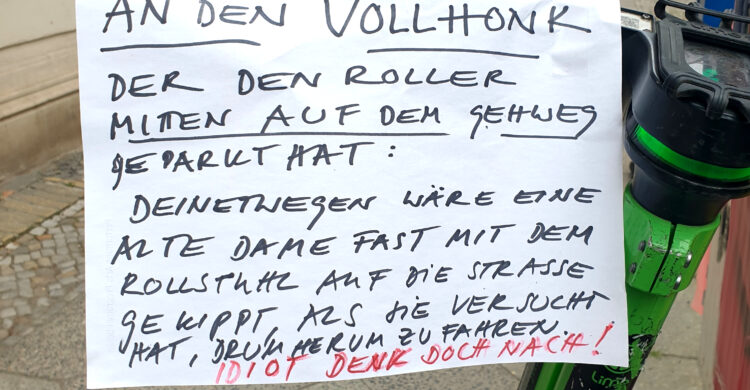 AN DEN VOLLHONK
DER DEN ROLLER
MITTEN AUF DEM GEHWEG
GEPARKT HAT:
DEINETWEGEN WÄRE EINE
ALTE DAME FAST MIT DEM
ROLLSTUHL AUF DIE STRASSE
GEKIPPT, ALS SIE VERSUCHT
HAT, DRUMHERUM ZU FAHREN.
IDIOT DENK DOCH NACH!